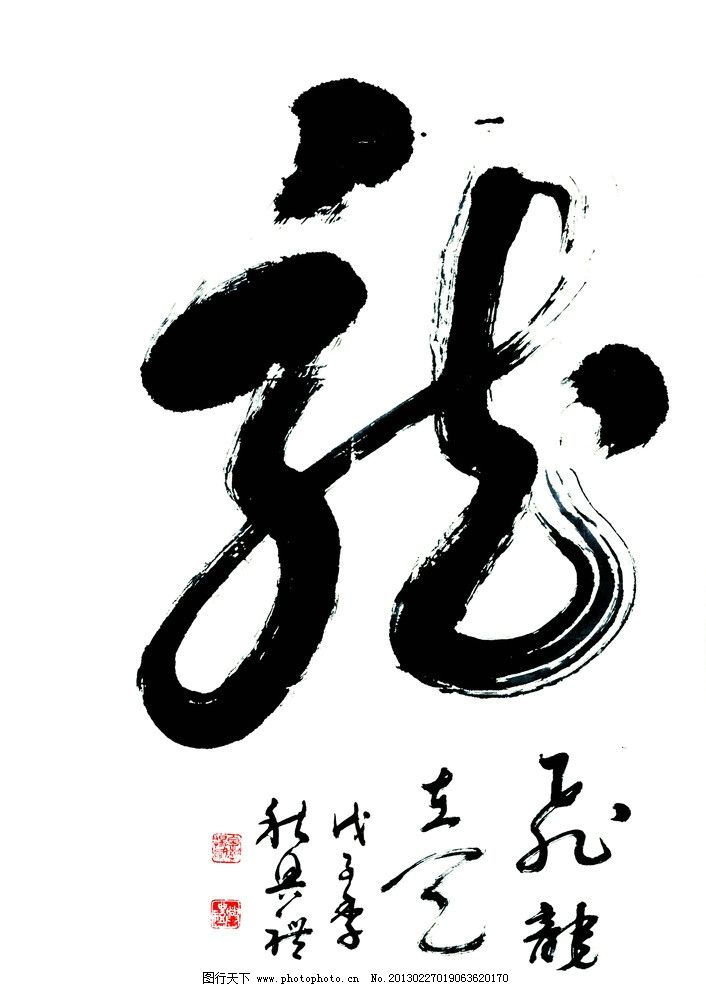 龍
飛龍
在天
戊子季
秋興禮
图行天下 www.photophoto.cn No.20130227019063620170